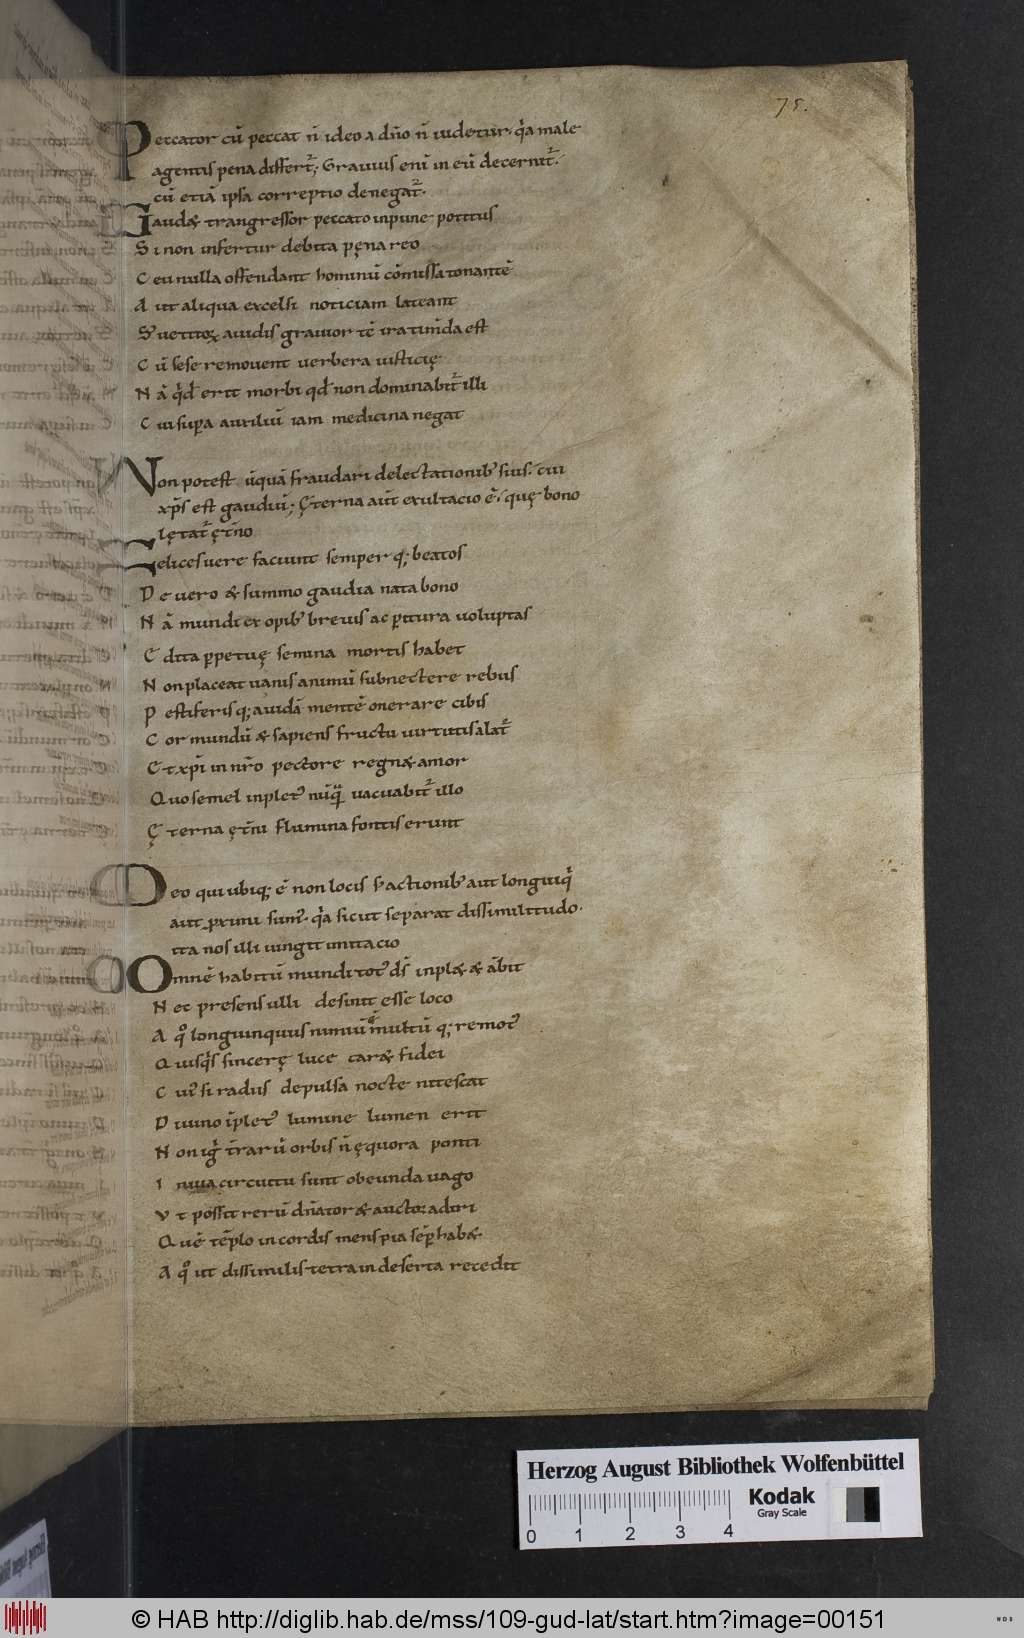 75.
Peccator cū peccat n̄ ideo a dn̄o n̄ iudetur. q̇a male
agentis pena differt᷑; Grauius eni in eū decernit᷑.
cū etiā ipsa correptio denegat᷑.
Gaud& trangressor peccato inpune potitus
Si non infertur debita pęna reo
Ceu nulla offendant hominū cōmissa tonantē
Aut aliqua excelsi noticiam lateant
Sꝫ uetitoꝝ auidis grauior tē iratuīda est
Cū sese remouent uerbera iusticię
Nā q̇d erit morbi qđ non dominabit᷑ illi
Cui supa auxiliū iam medicina negat
Non potest ūquā fraudari delectationibꝫ suis. cui
xp̄s est gaudiū; Ęterna aut̄ exultacio ē. quę bono
lętat᷑ ęt̄no
Felices uere faciunt semper q; beatos
De uero & summo gaudia nata bono
Nā mundi ex opibꝫ breuis ac p̄itura uoluptas
Edita ꝑpetuę semina mortis habet
Non placeat uanis animū subnectere rebus
Pestiferisq; auidā mentē onerare cibis
Cor mundū & sapiens fructu uirtutis alat᷑
Et xp̄i in nr̄o pectore regn& amor
Quo semel inplet᷒ nūq̄ uacuabit᷑ illo
Ęterna ęt̄ni flumina fontis erunt
Deo qui ubiq; ē non locis sꝫ actionibꝫ aut longuiq̇
aut ꝓximi sum᷒. q̇a sicut separat dissimilitudo.
ita nos illi iungit imitacio
Omnē habitū mundi tot᷒ ds̄ inpl& & ābit
Nec presens ulli desinit esse loco
A q̊ longuinquus nimiū multū q; remot᷒
Quisq̇s sincerę luce car& fidei
Cui᷒ si radus depulsa nocte nitescat
Diuino īplet᷒ lumine lumen erit
Non iḡ t̄rarū orbis n̄ ęquora ponti
Inuia circuitu sunt obeunda uago
Vt possit rerū dn̄ator & auctor adiri
Quē tēplo in cordis mens pia sēp hab&
A q̊ ut dissimilis tetra in deserta recedit
Herzog August Bibliothek Wolfenbüttel
Kodak
Gray Scale
0 1 2 3 4
© HAB http://diglib.hab.de/mss/109-gud-lat/start.htm?image=00151